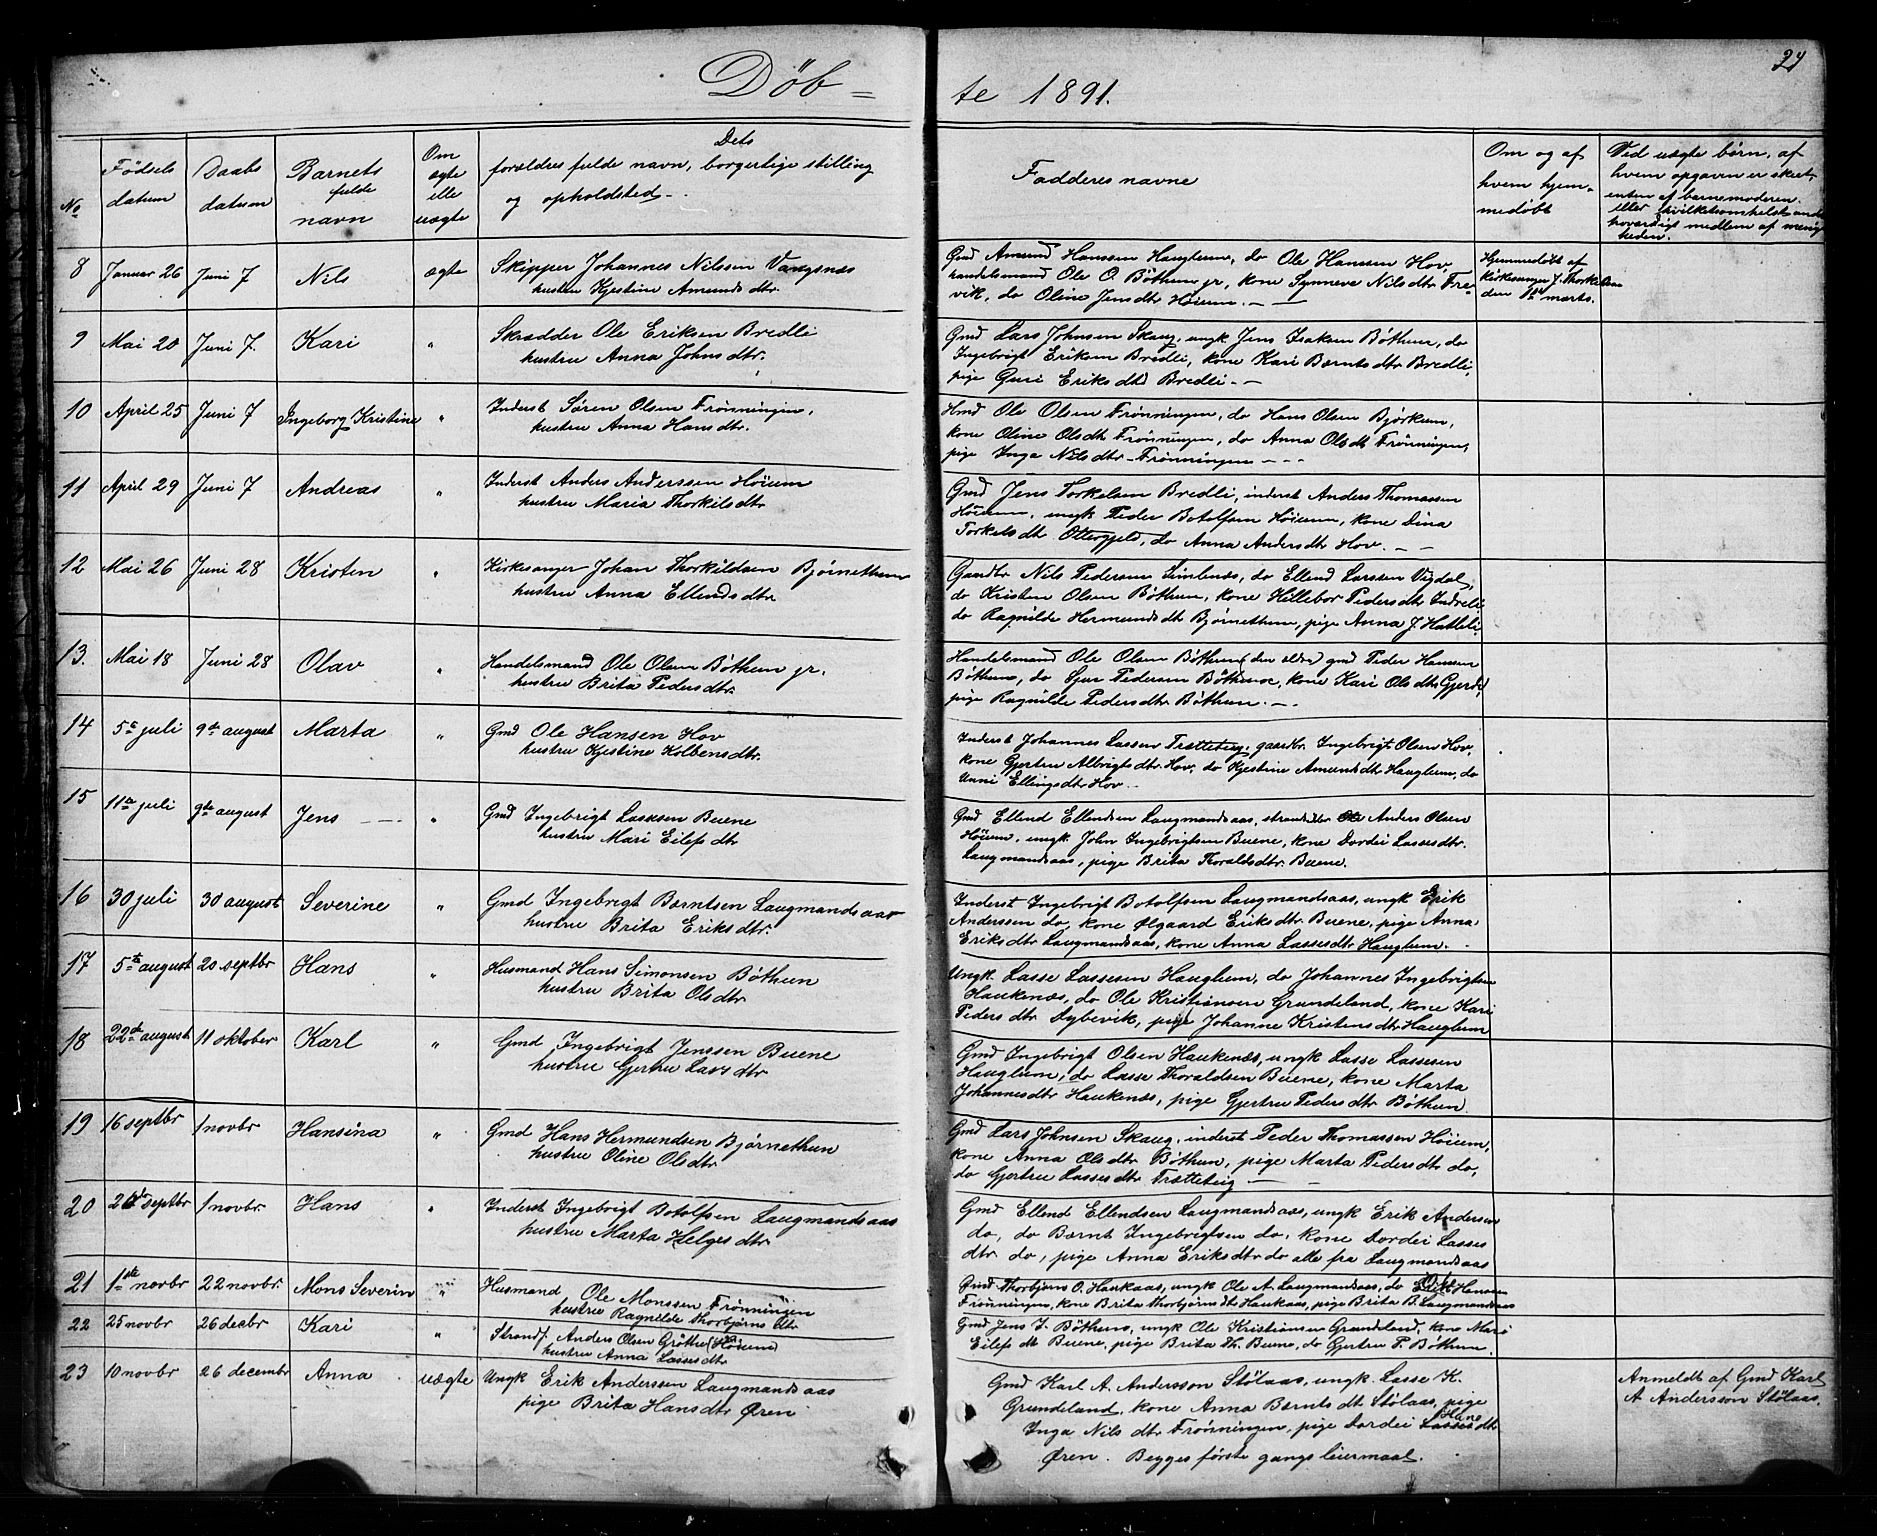 Døb=
te 1891.
29
No
Fødsels datum
Daabs datum
Barnets fulde navn
Om ægte ille uægte
Dets
forældres fulde navn, borgerlige stilling
og opholdsted.
Fadderes navne
Om og af
hvem hjem-
medøbt
Ved uægte børn, af
hvem opgaven er skeet,
enten af barnemoderen.
eller hvilketsomhelst andet
hovardigt medlem af menig
heden.
8 Januar 26 Juni 7 Nils ægte Skipper Johannes Nilssen Vangsnæs
hustru Kjestine Amunds dtr.
Gmd Amund Hanssen Hauglum, do Ole Hanssen Hov,
handelsmand Ole O. Bøthun jr, kone Synneva Nils dtr Fre-
vik, do Oline Jens dtr Høium.
Hjemmedøbt af
kirkesanger J. Thorkildsen
den 1ste marts.
9 Mai 20 Juni 7. Kari " Skrædder Ole Eriksen Bredli
hustru Anna Johns dtr.
Gmd Lars Johnsen Skaug, ungk Jens Isaksen Bøthun, do
Ingebrigt Eriksen Bredli, kone Kari Bærnts dtr Bredli,
pige Guri Eriks dtr Bredli.
10 April 25 Juni 7 Ingeborg Kristine " Inderst Søren Olsen Frønningen,
hustru Anna Hans dtr.
Hmd Ole Olsen Frønningen, do Hans Olsen Bjørkum,
kone Oline Ols dtr Frønningen, do Anna Ols dtr Frønningen,
pige Inga Nils dtr Frønningen
11 April 29 Juni 7 Andreas " Inderst Anders Anderssen Høium
hustru Maria Thorkils dtr
Gmd Jens Torkelsen Bredli, inderst Anders Thomassen
Høium, ungk Peder Botolfsen Høium, kone Dina
Torkels dtr Otteregjeld, do Anna Anders dtr Hov.
12 Mai 26 Juni 28 Kristen " Kirkesanger Johan Thorkildsen Bjørnethun
hustru Anna Ellends dtr
Gaardbr Nils Pedersen Simlenæs, do Ellend Larssen Vigdal,
do Kristen Olsen Bøthun, kone Hillebor Peders dtr Indreli
do Ragnilde Hermunds dt Bjørnethun, pige Anna J. Hatleli
13. Mai 18 Juni 28 Olav " Handelsmand Ole Olsen Bøthun jr.
hustru Brita Peders dtr
Handelsmand Ole Olsen Bøthun (den ældre) gmd Peder Hansen
Bøthun, do Sjur Pedersen Bøthun, kone Kari Ols dtr Gjerde,
pige Ragnilde Peders dtr Bøthun.
14 5te juli 9de august Marta " Gmd Ole Hansen Hov
hustru Kjestine Kolbens dtr.
Inderst Johannes Lassen Trætteteig, gaardbr. Ingebrigt Olsen Hov,
kone Gjertru Albrigts dtr Hov, do Kjestine Amunds dtr Hauglum, do
Unni Ellings dtr Hov.
15 11te juli 9de august Jens " Gmd Ingebrigt Lassesen Buene
hustru Mari Eilefs dtr
Gmd Ellend Ellendsen Laugmandsaas, Anders Olsen
Høium, ungk John Ingebrigtsen Buene, kone Dordei Lasses dtr.
Laugmandsaas, pige Brita Thoralds dtr. Buene.
16 30 juli 30 august Severine " Gmd Ingebrigt Bærntsen Laugmandsaas
hustru Brita Eriks dtr.
Inderst Ingebrigt Botolfsen Laugmandsaas, ungk Erik
Anderssen do, kone Ølgaard Eriks dtr Buene, pige Anna
Eriks dtr Laugmandsaas, kone Anna Lasses dtr Hauglum.
17 5te august 20 septbr Hans " Husmand Hans Simonsen Bøthun
hustru Brita Ols dtr
Ungk. Lasse Lassesen Hauglum, do Johannes Ingebrigtsen
Haukenæs, do Ole Kristiansen Grundeland, kone Kari
Peders dtr Dybevik, pige Johanne Kristens dtr Hauglum
18 22de august 11 oktober Karl " Gmd Ingebrigt Jenssen Buene
hustru Gjertru Lars dtr
Gmd Ingebrigt Olsen Haukenæs, ungk Lasse Lassesen
Hauglum, do Lasse Thoraldsen Buene, kone Marta
Johannes dtr Haukenæs, pige Gjertru Peders dtr Bøthun
19 16 septbr 1 novbr Hansina " Gmd Hans Hermundsen Bjørnethun
hustru Oline Ols dtr
Gmd Lars Johnsen Skaug, inderst Peder Thomassen Høium,
kone Anna Ols dtr Bøthun, pige Marta Peders dtr do,
do Gjertru Lasses dtr Trætteteig
20 septbr 1 novbr. Hans " Inderst Ingebrigt Botolfsen Laugmandsaas
hustru Marta Helges dtr
Gmd Ellend Ellendsen Laugmandsaas, ungk Erik Andersen
do, do Bærnt Ingebrigtsen do, kone Dordei Lasses
dtr do, pige Anna Eriks dtr do alle fra Laugmandsaas
21 1ste novbr 22 novbr. Mons Severin " Husmand Ole Monssen Frønningen
hustru Ragnilde Thorbjørns dtr
Gmd. Thorbjørn O. Haukaas, ungk Ole A. Laugmandsaas, do Ole Hansen
Frønningen, kone Brita Thorbjørns dt Haukaas, pige Brita B. Laugmandsaas
22 25 novbr 26 decbr Kari " Strandf. Anders Olsen Grøthe (Høium)
hustru Anna Lasses dtr
Gmd Jens I. Bøthun, ungk Ole Kristiansen Grundeland, kone Mari
Eilefs dt Buene, pige Brita Th. Buene, do Gjertru P. Bøthun.
23 10 novbr 26 decembr Anna uægte Ungk Erik Anderssen Laugmandsaas
pige Brita Hans dtr Øren
Gmd Karl A. Andersson Stølaas, ungk. Lasse K.
Grundeland, kone Anna Bærnts dt Stølaas, pige
Inga Nils dtr Frønningen, pige Dordei Hans dtr
Øren. Begges første gangs leiermaal.
Anmeldt af Gmd Karl
A Andersson Stølaas.